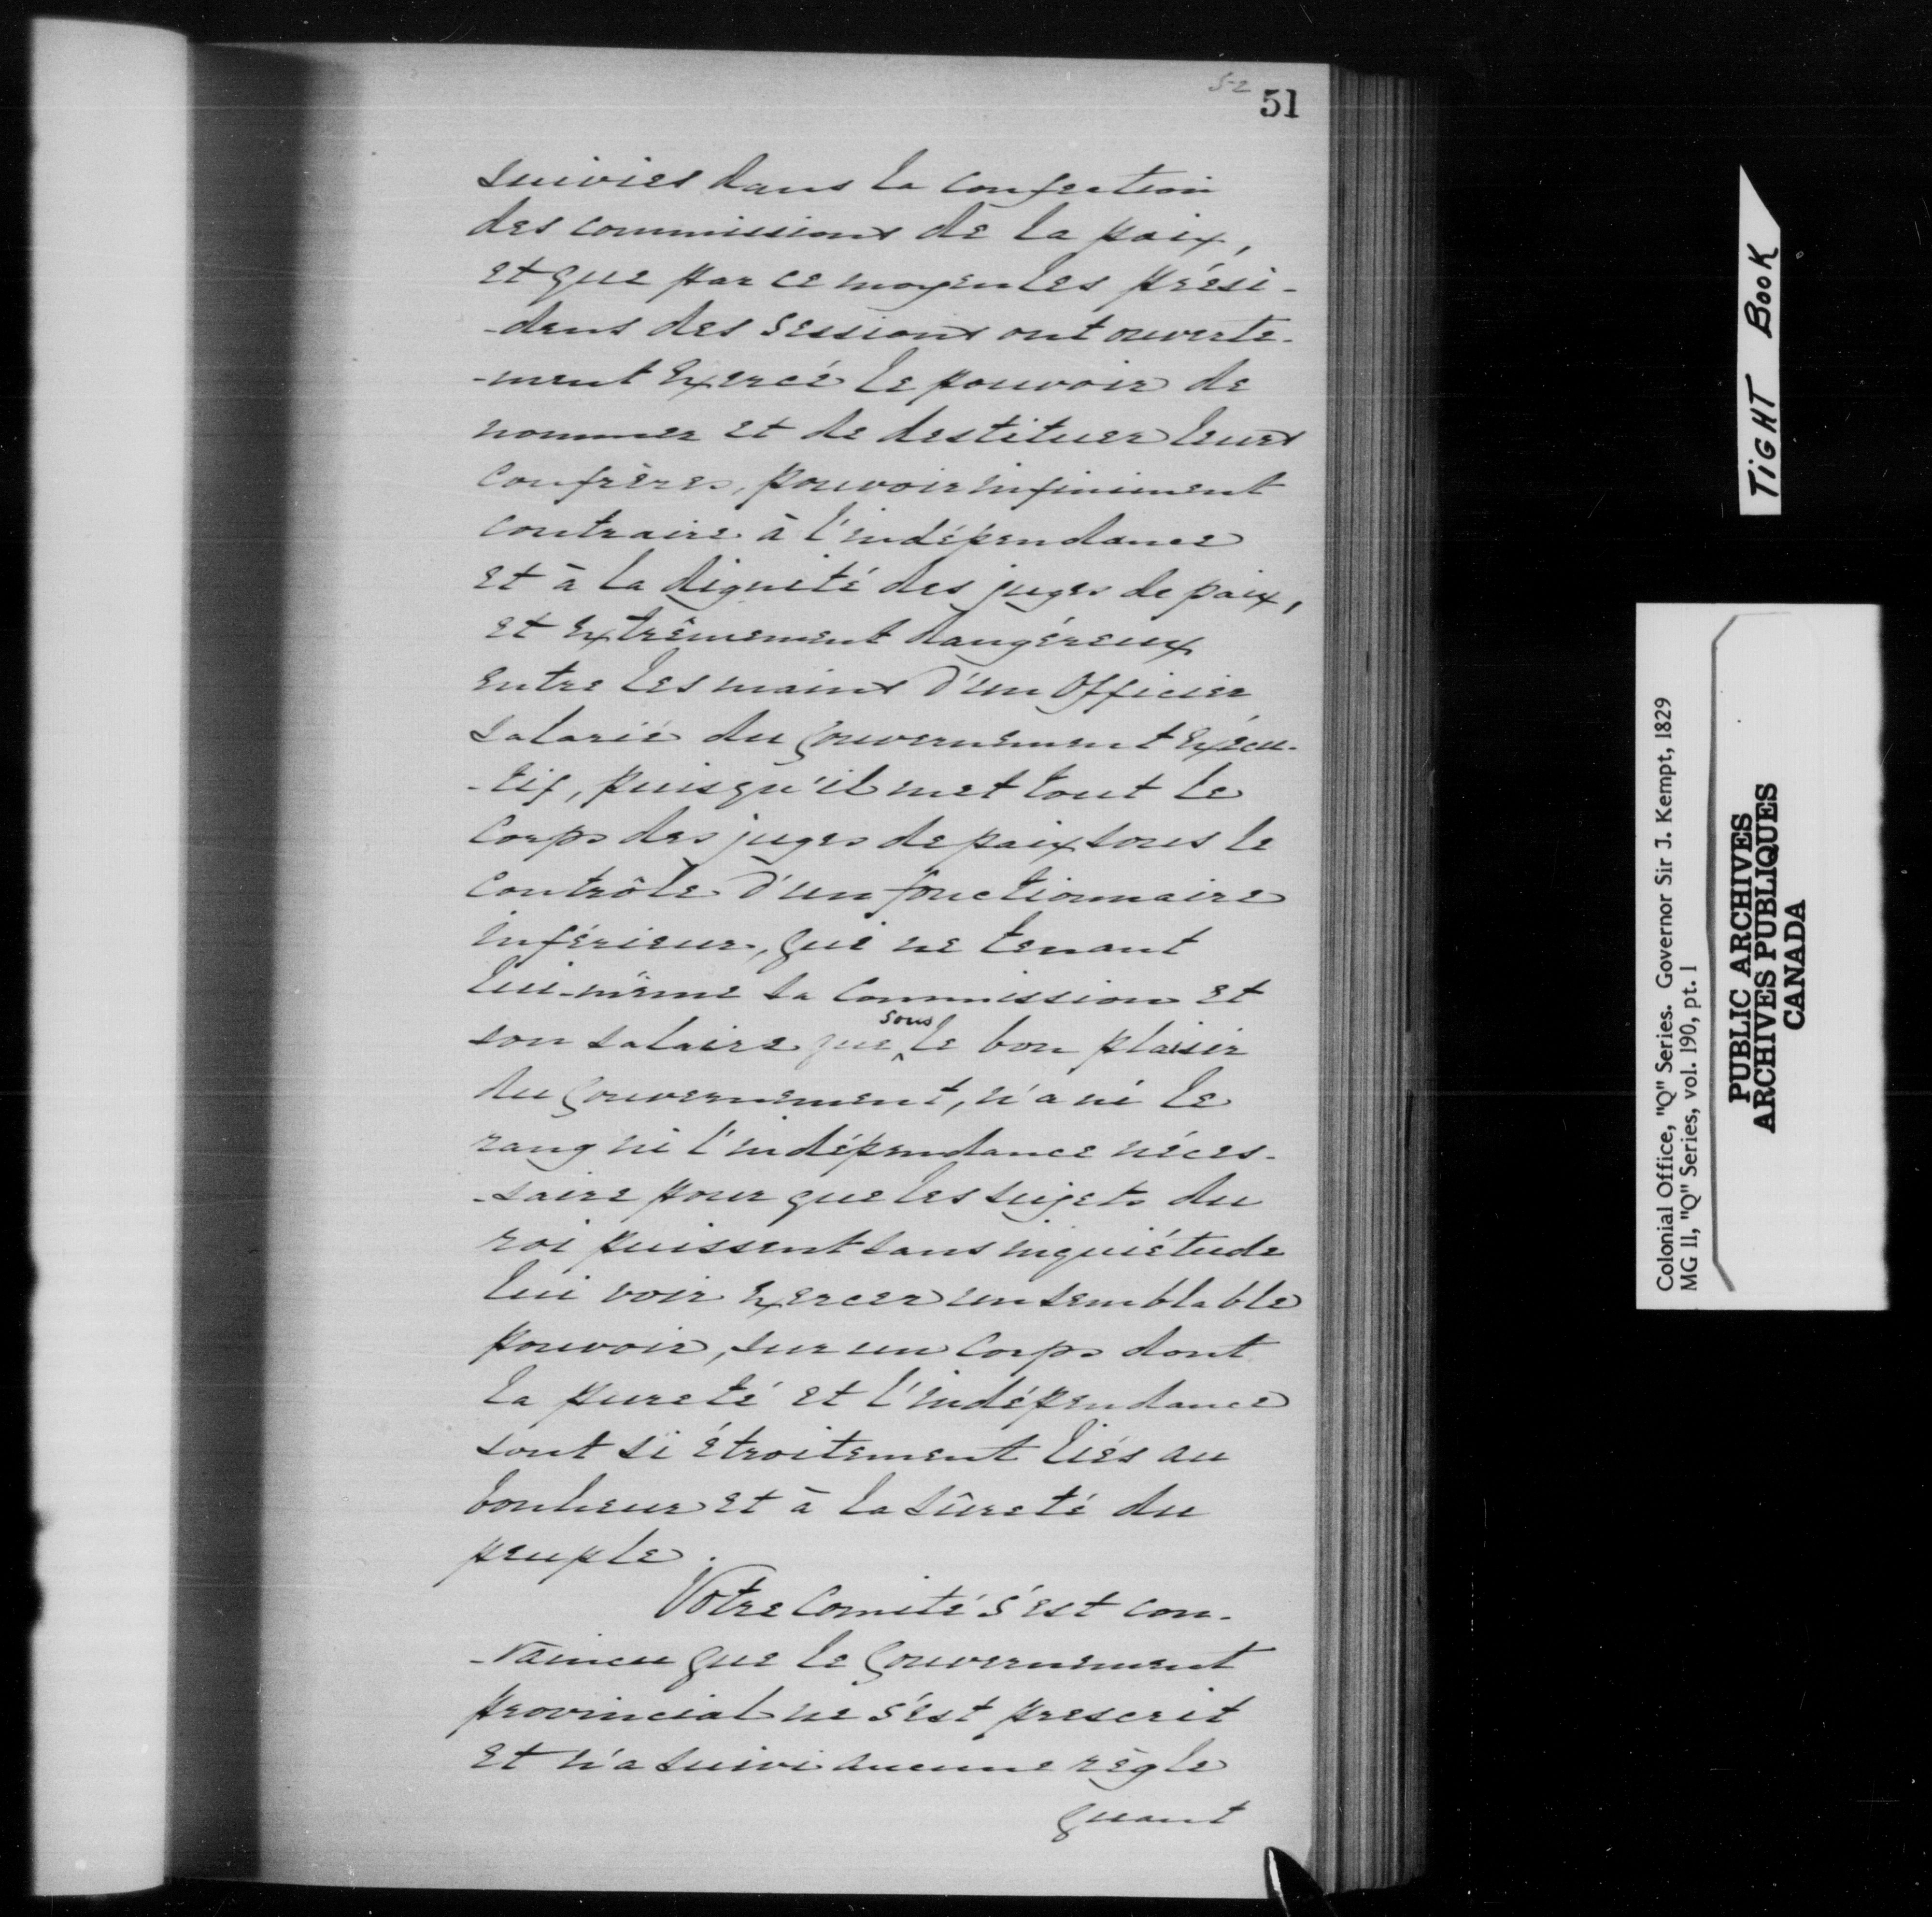 52
51
suivies dans la confection
des commissions de la paix,
et que par ce moyen les prési-
-dens des sessions ont ouverte-
-ment exercé le pouvoir de
nommer et de destituer leurs
confrères, pouvoir infiniment
contraire à l'indépendance
et à la dignité des juges de paix,
et extrêmement dangéreux
entre les mains d'un Officier
salarié du Gouvernement exécu-
-tif, puisqu'il met tout le
Corps des juges de paix sous le
Contrôle d'un fonctionnaire
inférieur, qui ne tenant
lui-même sa Commission et
son salaire que sous le bon plaisir
du Gouvernement, n'a ni le
rang ni l'indépendance néces-
-saire pour que les sujets du
roi puissent sans inquiétude
lui voir exercer un semblable
pouvoir, sur un Corps dont
la pureté et l'indépendance
sont si étroitement liés au
bonheur et à la sûreté du
peuple.
Votre Comité s'est con-
-vaincu que le Gouvernement
provincial ne s'est prescrit
et n'a suivi aucune règle
quant
TIGHT BOOK
Colonial Office, "Q" Series. Governor Sir J. Kempt, 1829
MG 11, "Q" Series, vol. 190, pt. 1
PUBLIC ARCHIVES
ARCHIVES PUBLIQUES
CANADA